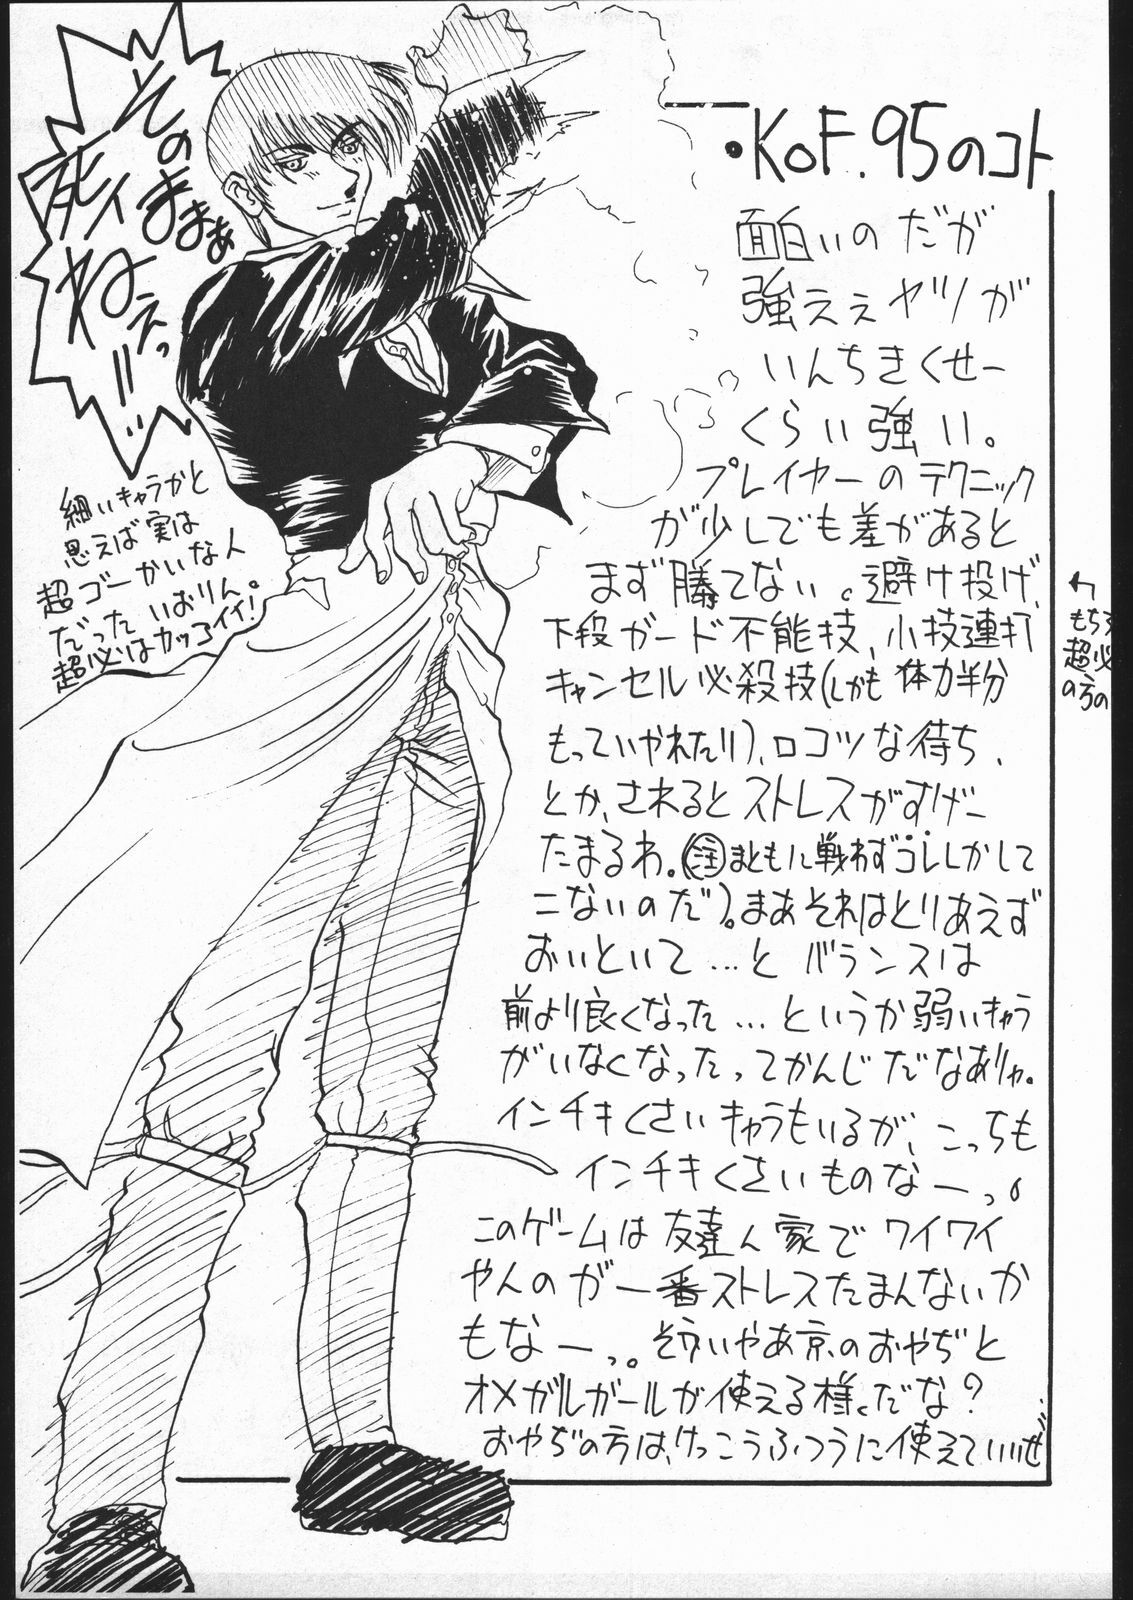 ・KOF.95のコト
面白いのだが
強ええヤツが
いんちきくせー
くらい強い。
プレイヤーのテクニック
が少しでも差があると
まず勝てない。避け投げ、
下段ガード不能技、小技連打
キャンセル必殺技(しかも体力半分
もっていかれたり)、ロコツな待ち、
とか、されるとストレスがすげー
たまるわ。(注まともに戦わずコレしかして
こないのだ)。まあそれはとりあえず
おいといて…と バランスは
前より良くなった…というか弱いキャラ
がいなくなったってかんじだなありゃ。
インチキくさいキャラもいるが、こっちも
インチキくさいものなーっ。
このゲームは友達ん家でワイワイ
やんのが一番ストレスたまんないか
もなーっ。そういやあ京のおやぢと
オメガルガールが使える様だな?
おやぢの方は、けっこうふつうに使えていいぜ…
そのままぁ
死ィ
ねぇっ!!…
細いキャラかと
思えば実は
超ゴーかいな人
だったいおりん。
超必はカッコイイ!
↰
もちろ
超必
の方の